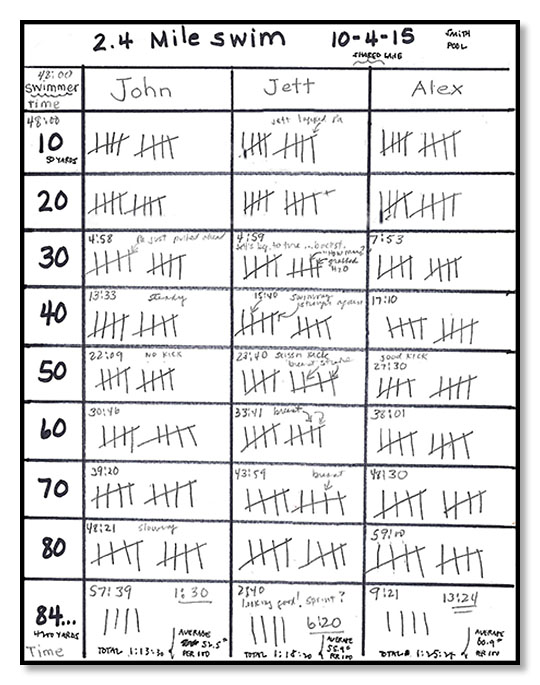 2.4 Mile swim 10-4-15 SMITH
SHARED LANE POOL
48:00
swimmer John Jett Alex
Time
48:00
10
50 YARDS
20
4:58 just pulled ahead 4:59 7:53
30
H2O
13:33 steady 15:40 swimming 17:10
40
22:09 NO KICK 23:40 scissor kick good kick
breast stroke 27:30
50
30:46 33:41 breast 38:01
60
39:20 43:59 breast 48:30
70
48:21 slowing 59:00
80
57:39 1:30 2:40 9:21 13:24
looking good! sprint?
6:20
84...
4200 YARDS
AVERAGE 52.5" PER 100
AVERAGE PER 100
AVERAGE 60.9" PER 100
Time TOTAL 1:13:30 TOTAL TOTAL